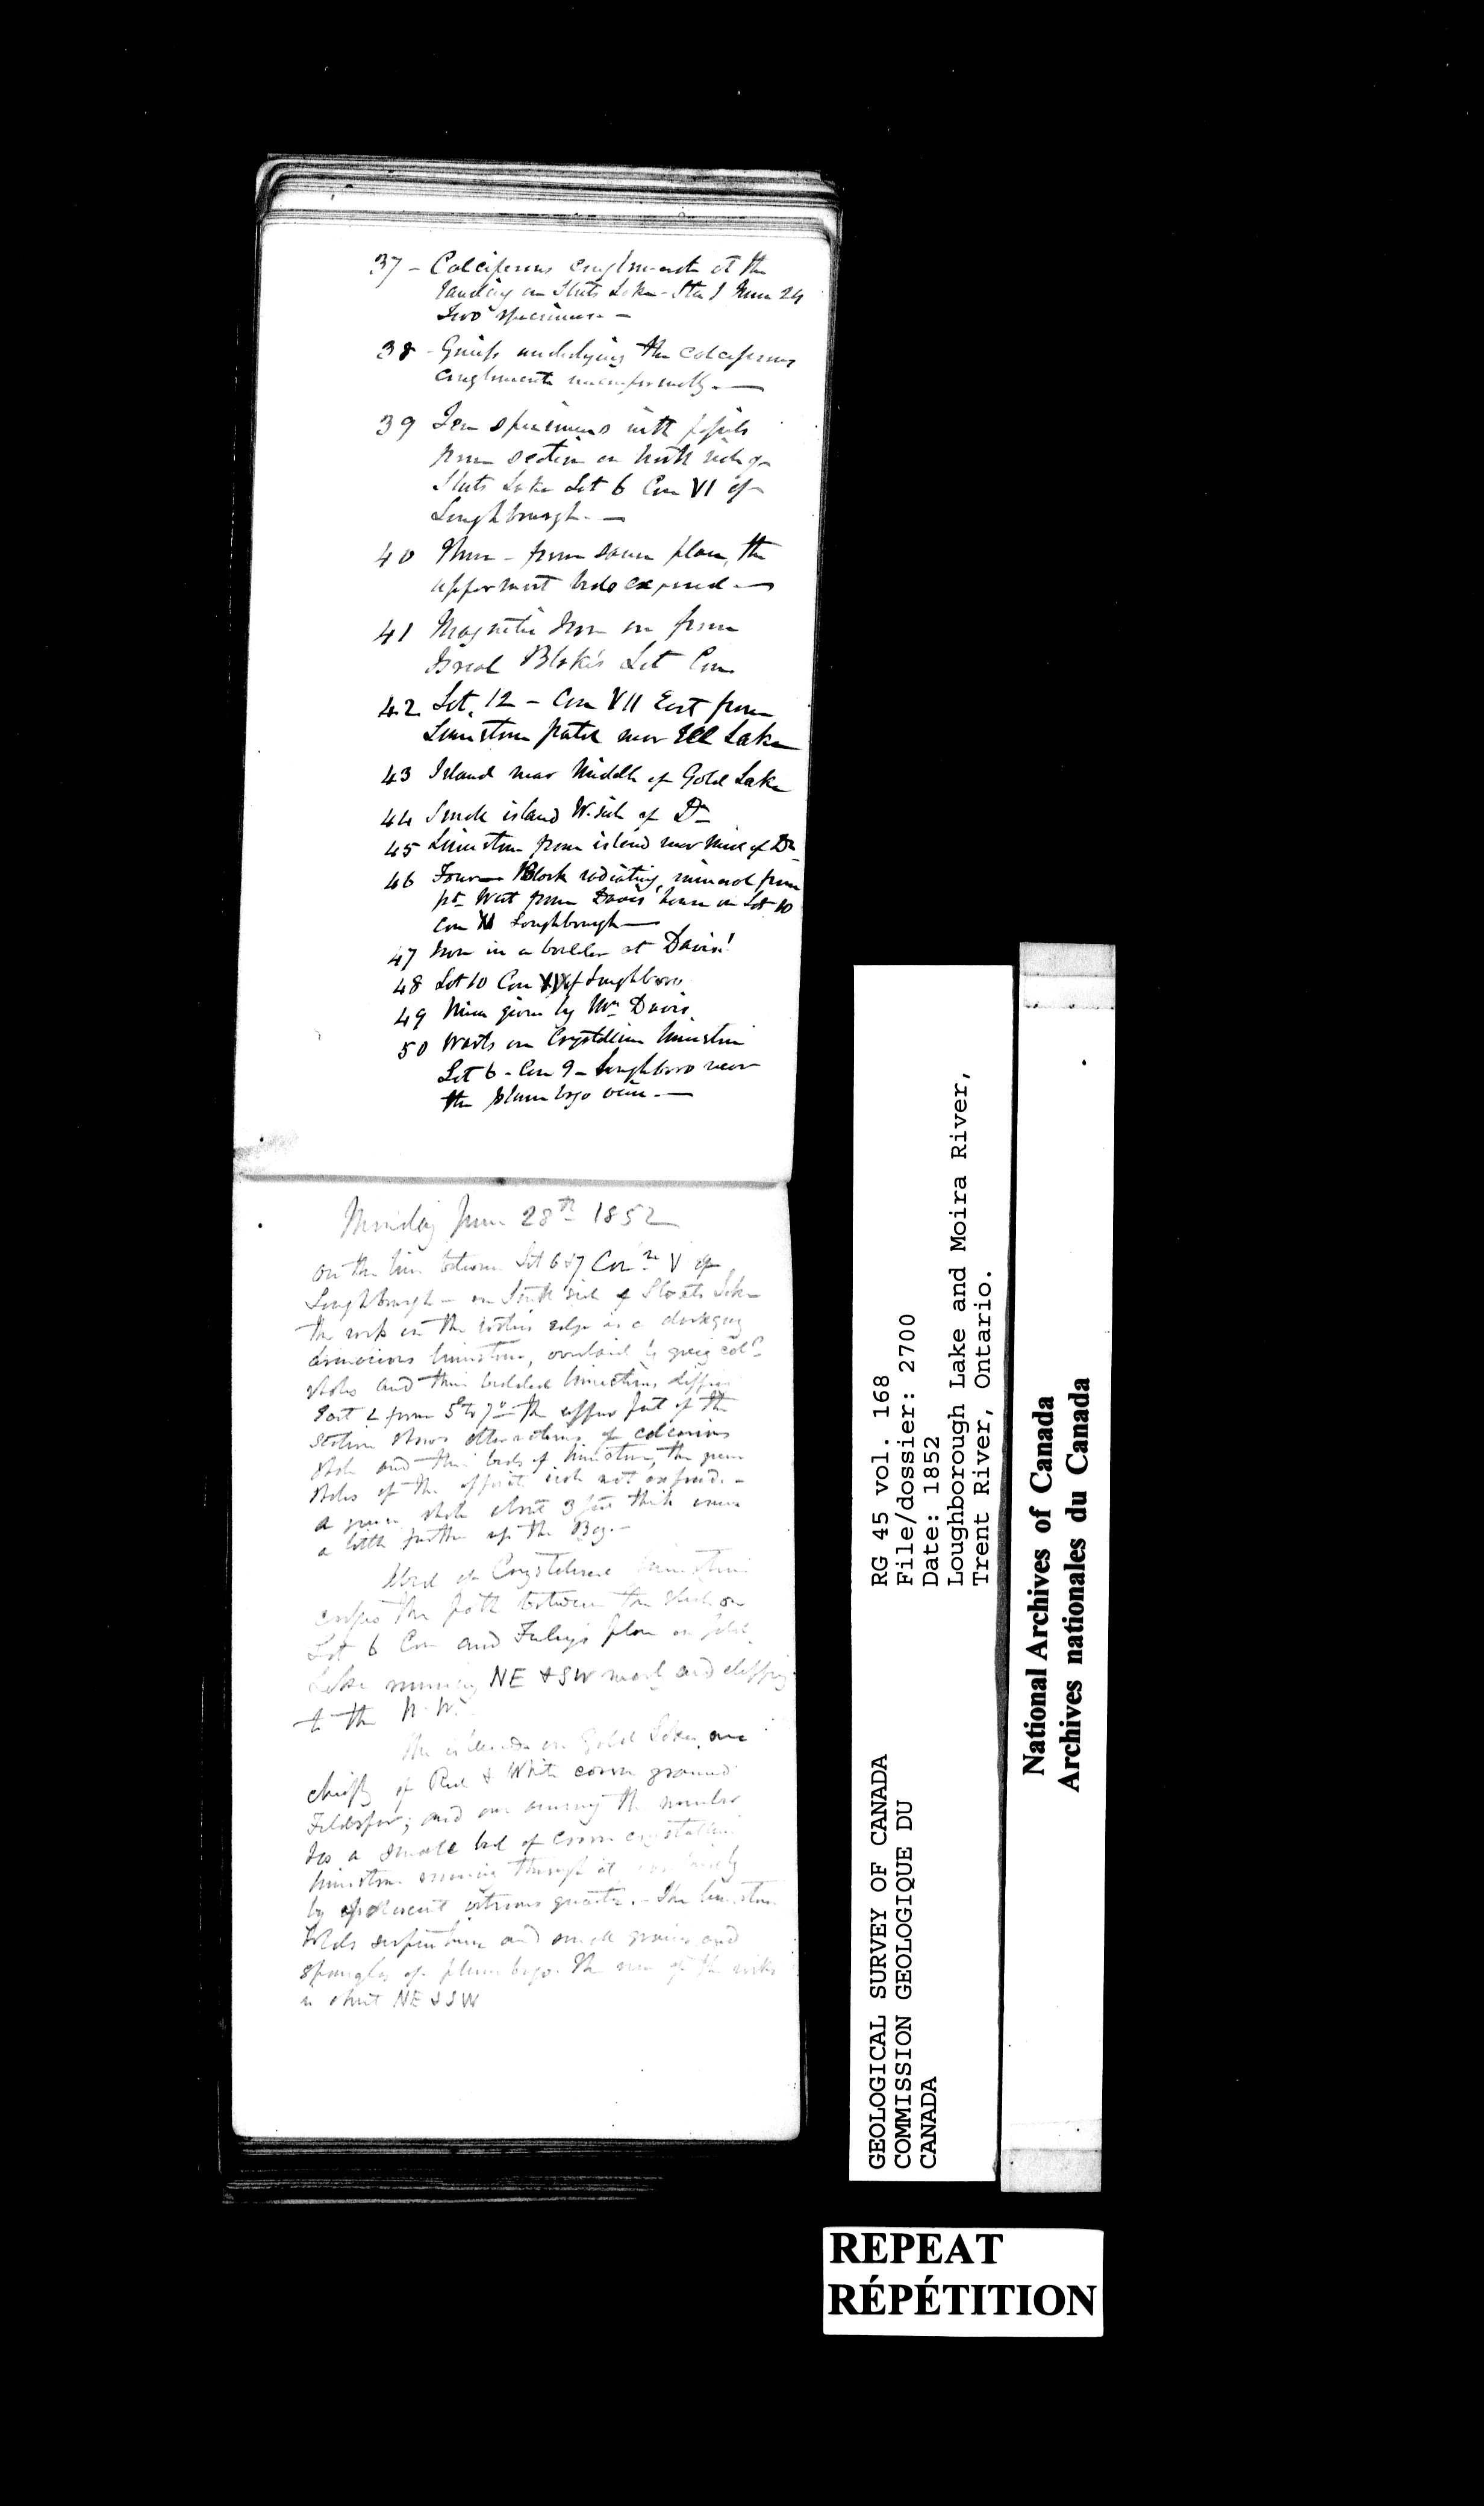 37 - Calciferous conglomerate at the
landing on Sluts Lake - Sta 1 June 24
Two specimens. -
38 - Gneiss underlying the calciferous
conglomerate unconformably. -
39 Ten specimens with fossils
from section on North side of
Sluts Lake Lot 6 Con VI of
Loughborough. -
40 Three - from same place, the
uppermost beds exposed -
41 Magnetic Iron ore from
Israel Blake's Lot Con
42 Lot. 12 - Con VII East from
Limestone patch near Lake
43 Island near Middle of Gold Lake
44 Small island W. side of Do
45 Limestone from island near of Do
46 Four Black radiating mineral from
pt West from Davis' house on Lot 10
Con Loughborough -
47 Iron in a boulder at Davis'
48 Lot 10 Con of Loughboro
49 Mica given by Mr Davis.
50 Warts on Crystalline limestone
Lot 6 - Con 9 - Loughboro near
the plumbago vein. -
Monday June 28th 1852
On the line between Lot 6 & 7 Con V of
Loughborough - on South side of Sloats Lake
the rock on the water's edge is a dark grey
limestone, overlaid by grey
shales and thin bedded limestone, dipping
East L from 5° to 7° - the upper part of the
section shows alternations of calcareous
shale and thin beds of limestone, the green
shales of the opposite side not exposed. -
a green shale about 3 feet thick
a little further up the Bay. -
of Crystalline limestone
the path between the
Lot 6 Con and place on Gold
Lake running NE & SW nearly and dipping
to the N.W.
The islands on Gold Lake are
chiefly of Red & White coarse grained
Feldspar; and one among the number
has a small bed of coarse crystalline
limestone running through it
by opalescent quartz. - The limestone
holds serpentine and small grains and
spangles of plumbago. The run of the rocks
is about NE & SW
GEOLOGICAL SURVEY OF CANADA
COMMISSION GEOLOGIQUE DU
CANADA
RG 45 vol. 168
File/dossier: 2700
Date: 1852
Loughborough Lake and Moira River,
Trent River, Ontario.
National Archives of Canada
Archives nationales du Canada
REPEAT
RÉPÉTITION